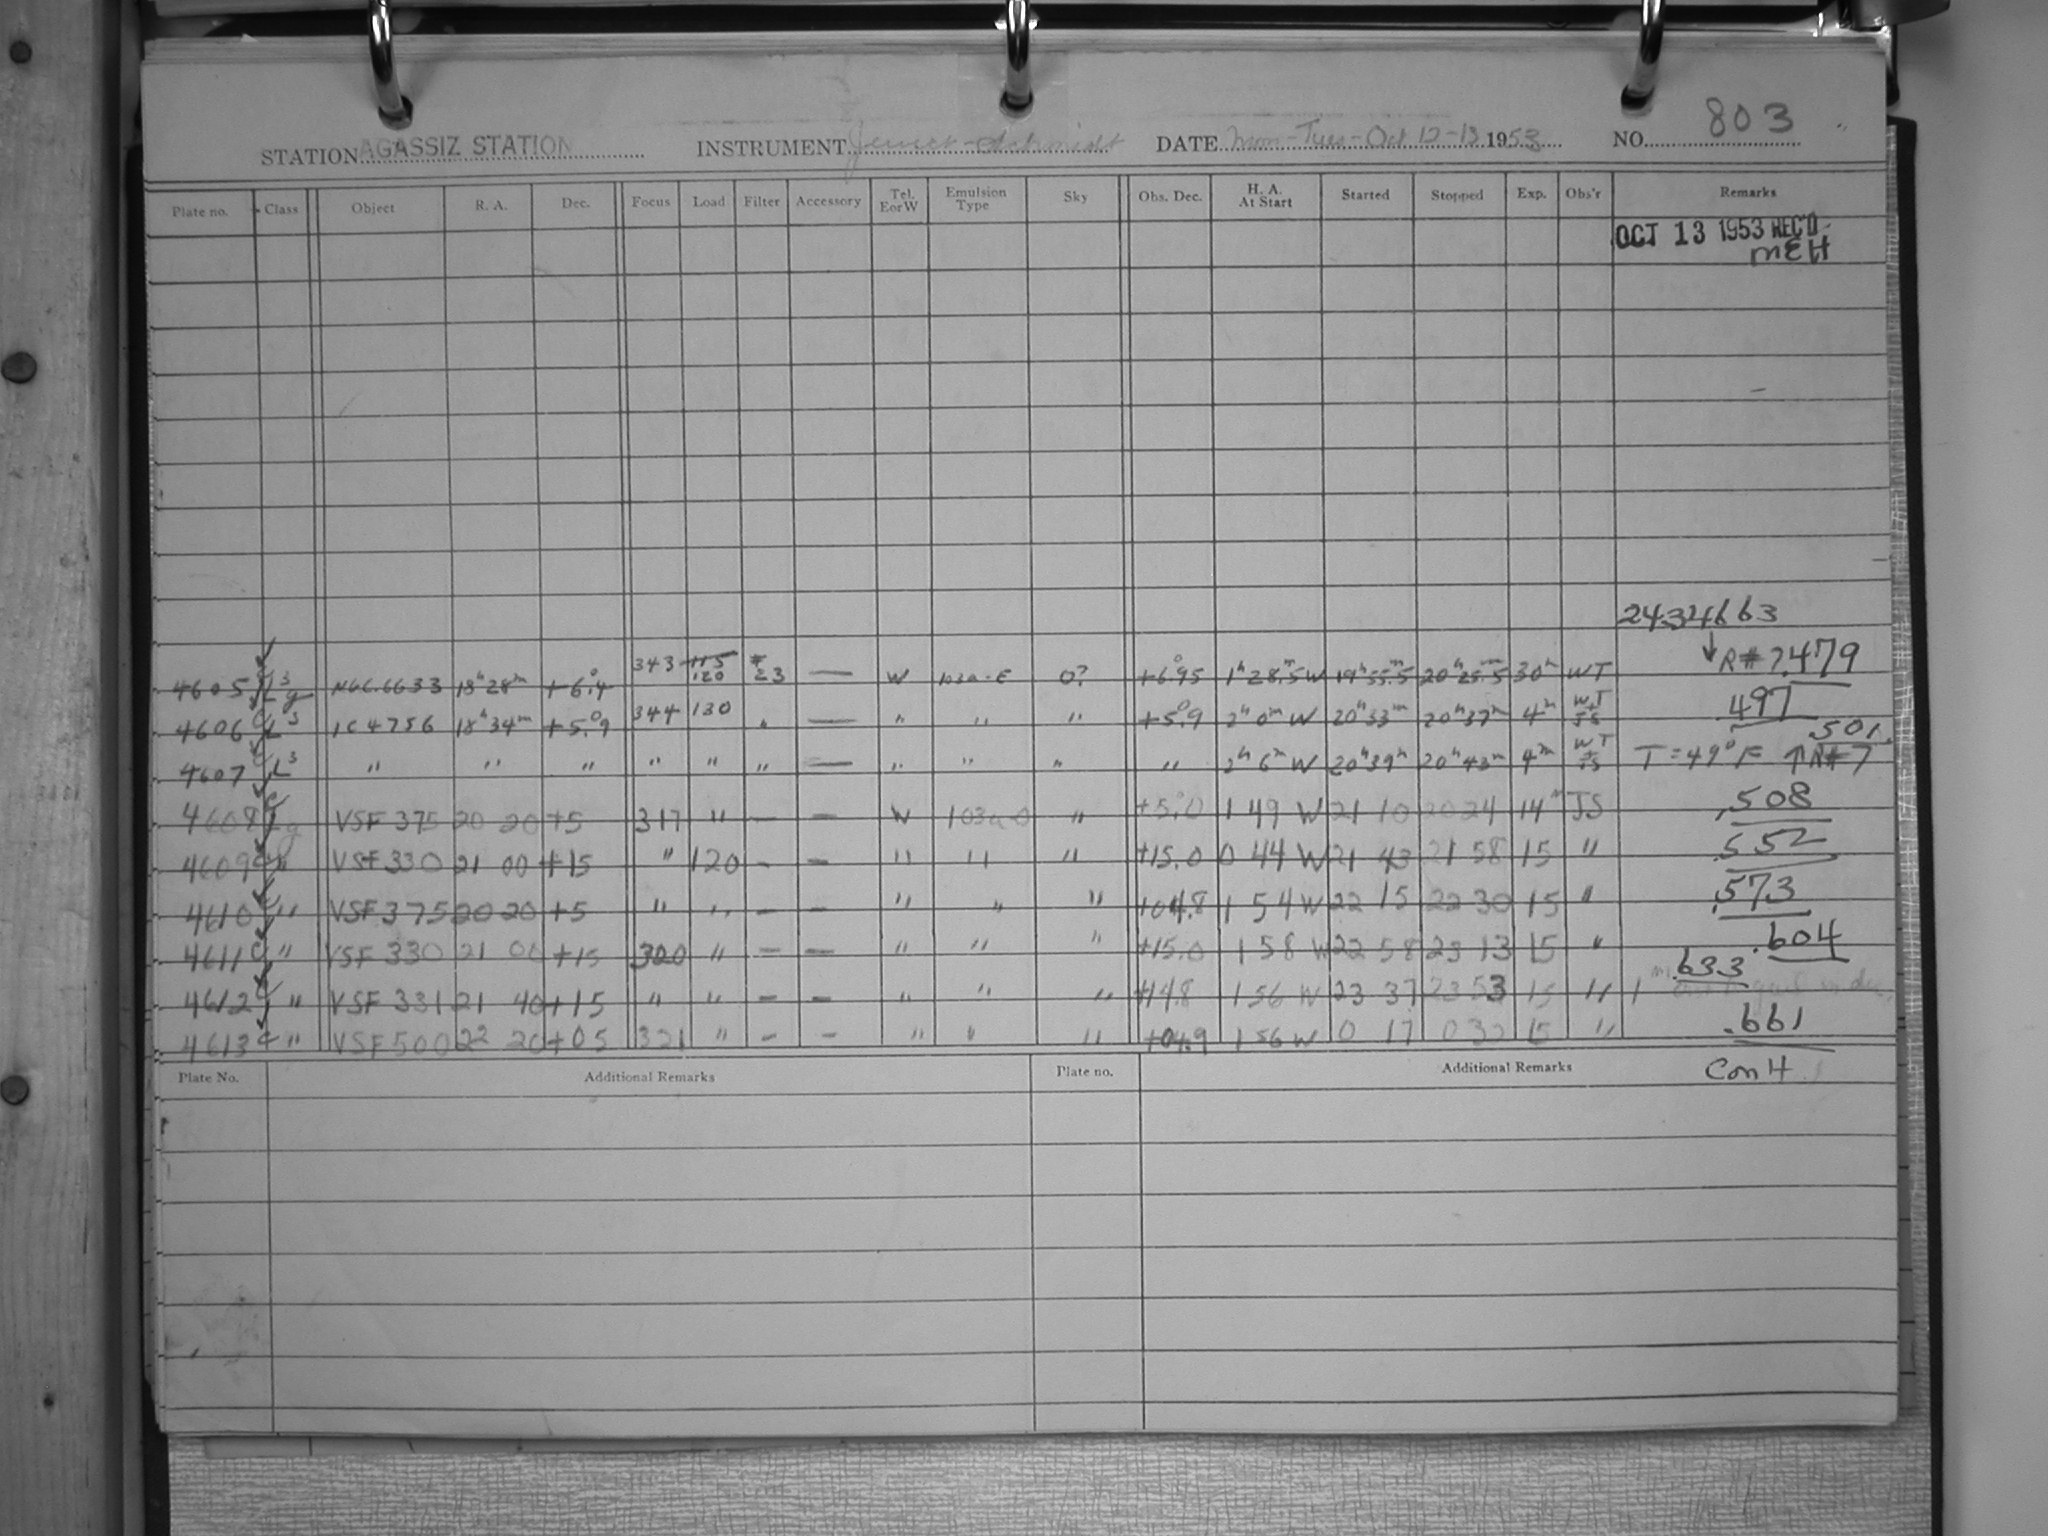 803
STATION AGASSIZ STATION INSTRUMENT Jewett-Schmidt DATE Mon-Tues-Oct 12-13 1953 NO.
Plate no. Class Object R. A. Dec. Focus Load Filter Accessory Tel. E or W Emulsion Type Sky Obs. Dec. H. A. At Start Started Stopped Exp. Obs'r Remarks
OCT 13 1953 REC'D
MEH
2434663
4605 NGC 6633 18h 28m +6.°4 343 115 120 #23 — W 103a-E 0? +6.°95 1h 28.m5 W 19h 55.m5 20h 25.m5 30m WT ↓ R#7 .479
4606 L3 IC 4756 18h 34m +5.°9 344 130 " — " " " +5.°9 2h 0m W 20h 33m 20h 37m 4m WT JS .497
.501
4607 L3 " " " " " " — " " " " 2h 6m W 20h 39m 20h 43m 4m WT + JS T = 49°F ↑ R#7
4608 VSF 375 20 20 +5 317 " — — W 103a-O " +5.°0 1 49 W 21 10 20 24 14m JS .508
4609 " VSF 330 21 00 +15 " 120 - — " " " +15.0 0 44 W 21 43 21 58 15 " .552
4610 " VSF 375 20 20 +5 " " — — " " " +04.8 1 54 W 22 15 22 30 15 " .573
4611 " VSF 330 21 00 +15 320 " — — " " " +15.0 1 58 W 22 58 23 13 15 " .604
4612 " VSF 331 21 40 +15 " " — — " " " +14.8 1 56 W 23 37 23 53 15 " .633
4613 " VSF 500 22 20 +05 321 " — — " " " +04.9 1 56 W 0 17 0 32 15 " .661
Plate No. Additional Remarks Plate no. Additional Remarks Con H